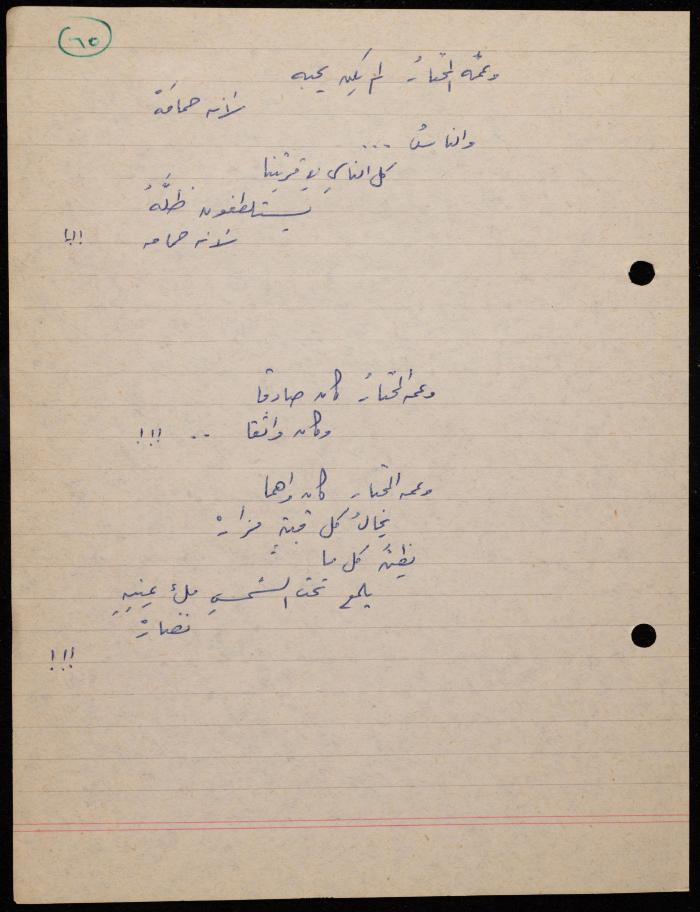 ٦٥
وعمُّه المختارُ لم يكن يحبه
لأنه حمامَةْ
والناسُ ...
كل الناسِ في قريتِنا
يستلطفون ظلَّهُ
لأنه حمامه !!!
وعمه المختارُ كان صادقا
وكان واثقا .. !!!
وعمه المختار كان واهما
يخالُ كل قبةٍ مزارْ
يظنُ كل ما
يلمع تحت الشمسِ ملءَ عينيهِ
نضارْ
!!!